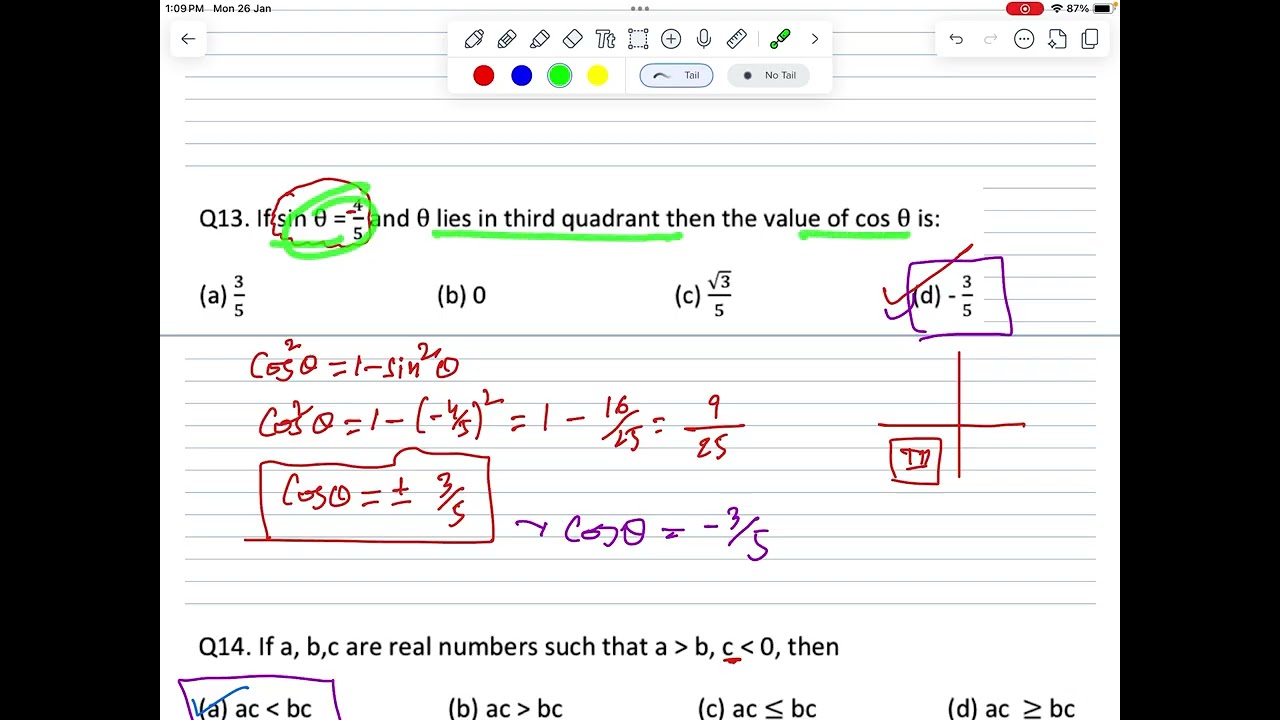 1:09 PM Mon 26 Jan 87%
Tt
Tail No Tail
Q13. If sin θ = -4/5 and θ lies in third quadrant then the value of cos θ is:
(a) 3/5 (b) 0 (c) √3/5 (d) - 3/5
Cos²θ = 1-sin²θ
Cos²θ = 1-(-4/5)² = 1 - 16/25 = 9/25
III
Cosθ = ± 3/5
→ Cosθ = -3/5
Q14. If a, b,c are real numbers such that a > b, c < 0, then
(a) ac < bc (b) ac > bc (c) ac ≤ bc (d) ac ≥ bc